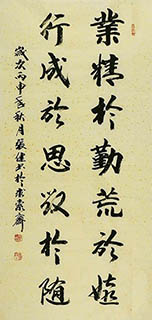 業精於勤荒於嬉
行成於思毀於隨
歲次丙申年秋月張健書於京東齋